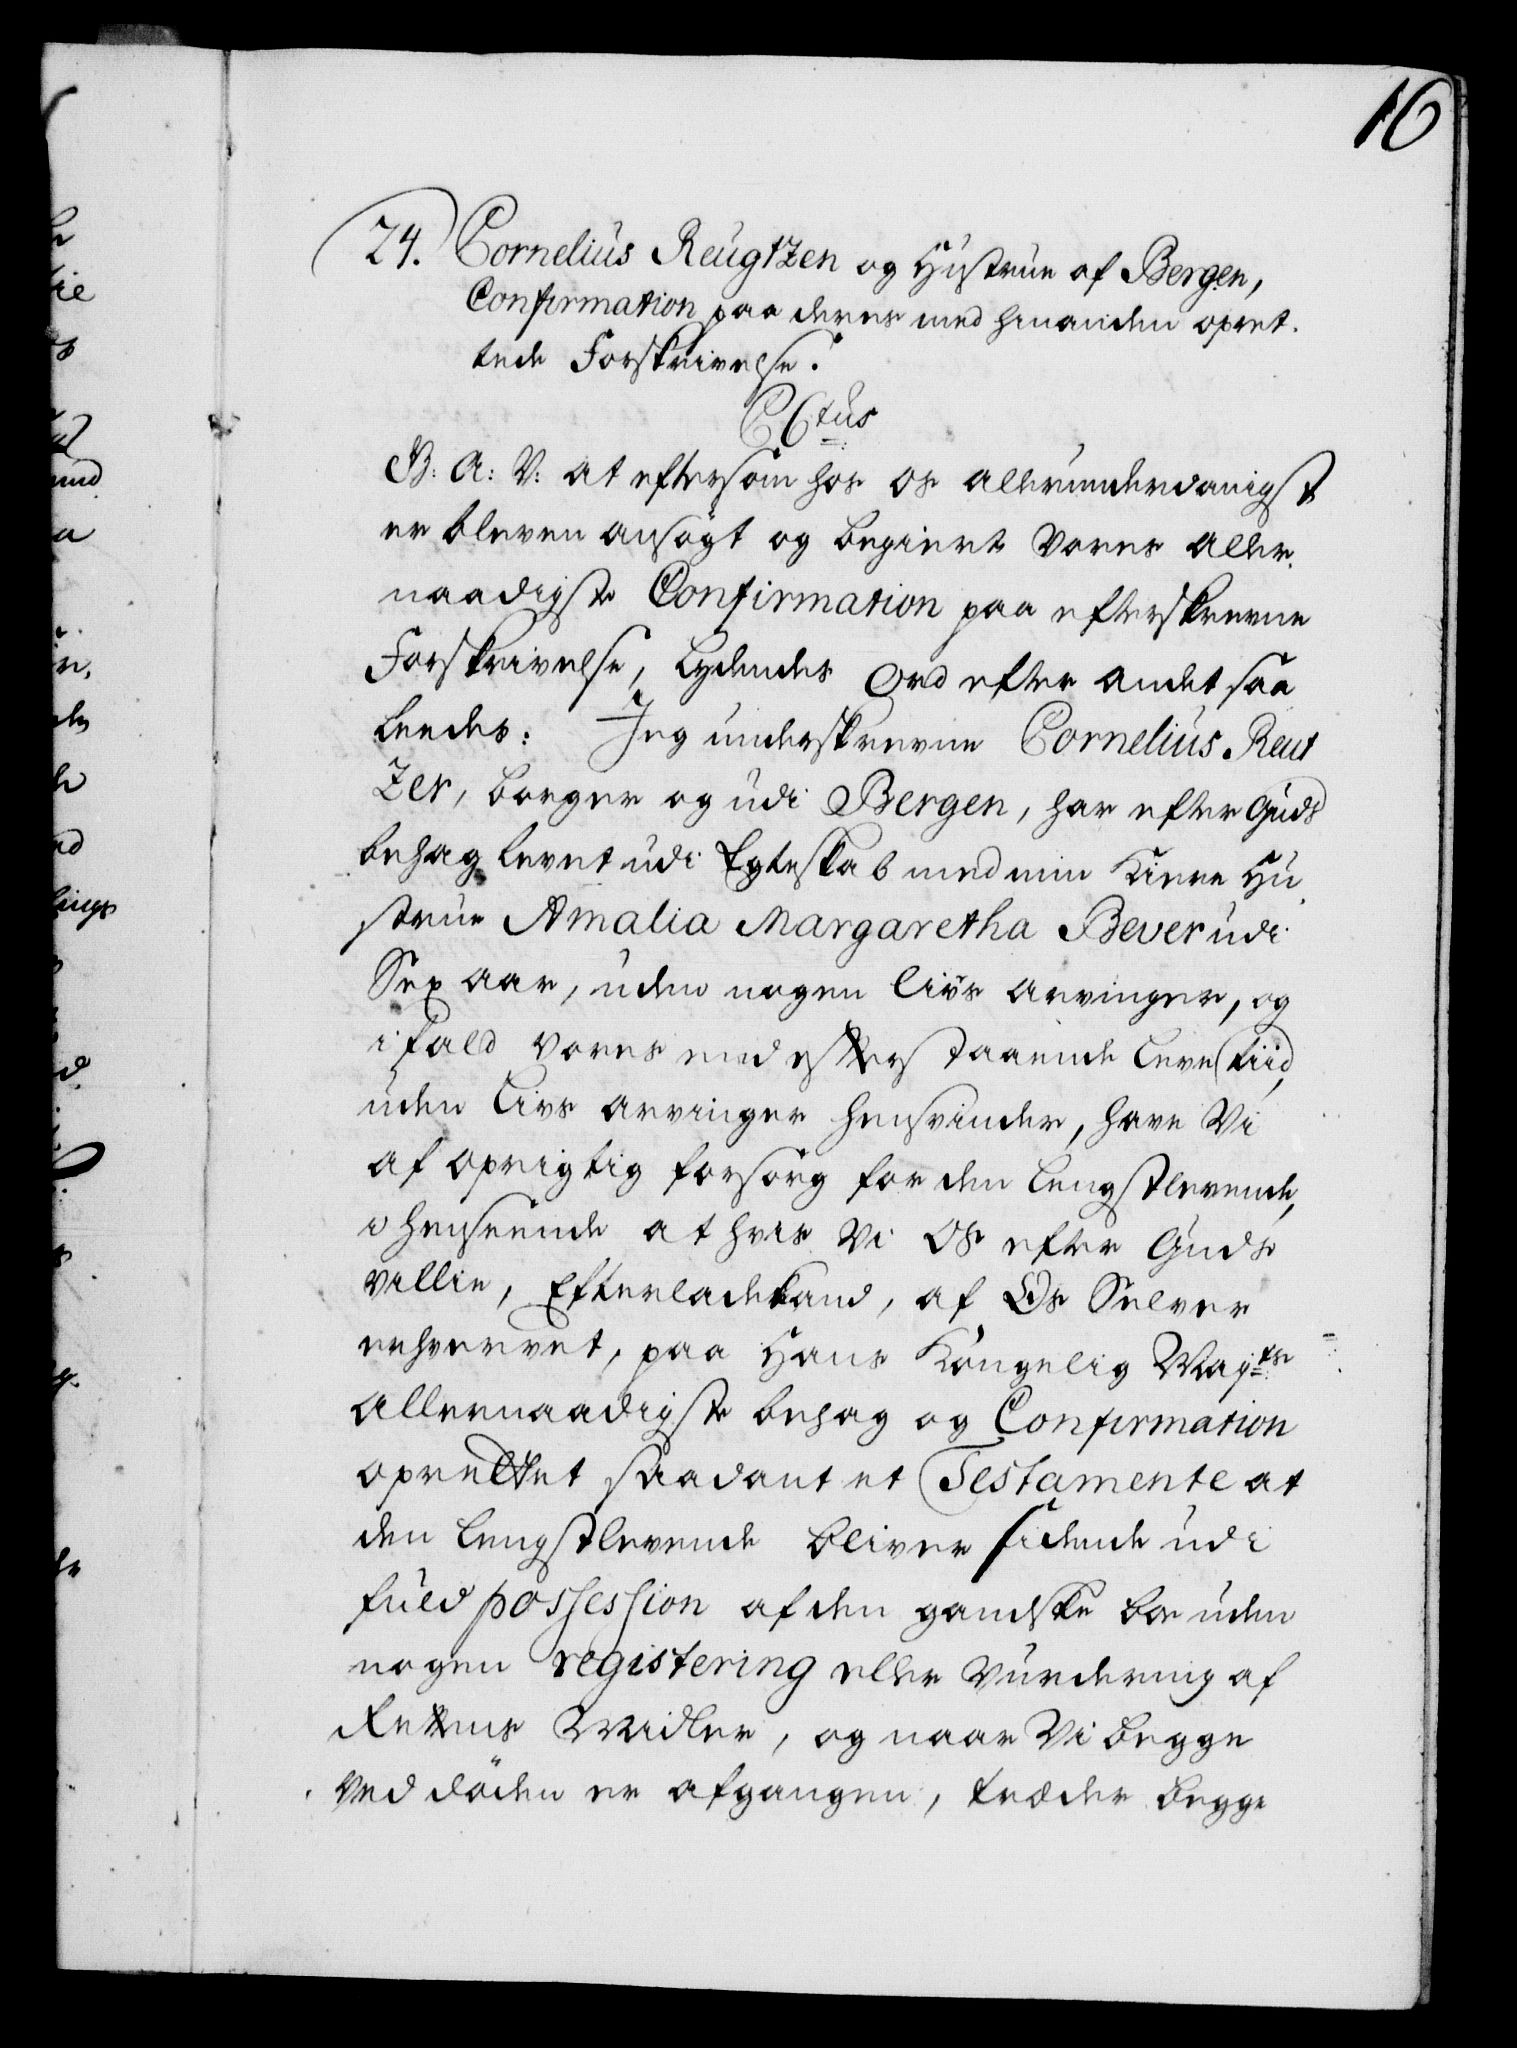 16
24. Cornelius Reugtzen og Hustrue af Bergen,
Confirmation paa deres med hinanden opret-
tede Forskrivelse.
C Ctus
G: A: V: at eftersom hos os allerunderdanigst
er bleven ansögt og begiert Vores Aller-
naadigste Confirmation paa efterskrevne
Forskrivelse, lydendes Ord efter andet saa
leedes: Jeg underskrevne Cornelius Reut
zer, borger og udi Bergen, har efter Guds
behag levet udi Egteskab med min Kiere Hu
strue Amalia Margaretha Bever udi
Sex aar, uden nogen livs arvinger, og
i fald vores med efterstaaende leve tiid,
uden livs arvinger hensvinder, have Vi
af oprigtig forsorg for den lengstlevende,
i henseende at hvis Vi Os efter Guds
villie, Efterlade kand, af Os Selver
erhvervet, paa Hans Kongelig Mayts
allernaadigste behag og Confirmation
oprettet saadant et Testamente at
den lengstlevende bliver sidende udi
fuld possession af den gandske boe uden
nogen registering eller Vurdering af
Rettens Midler, og naar Vi begge
ved döden er afgangen, træder begge